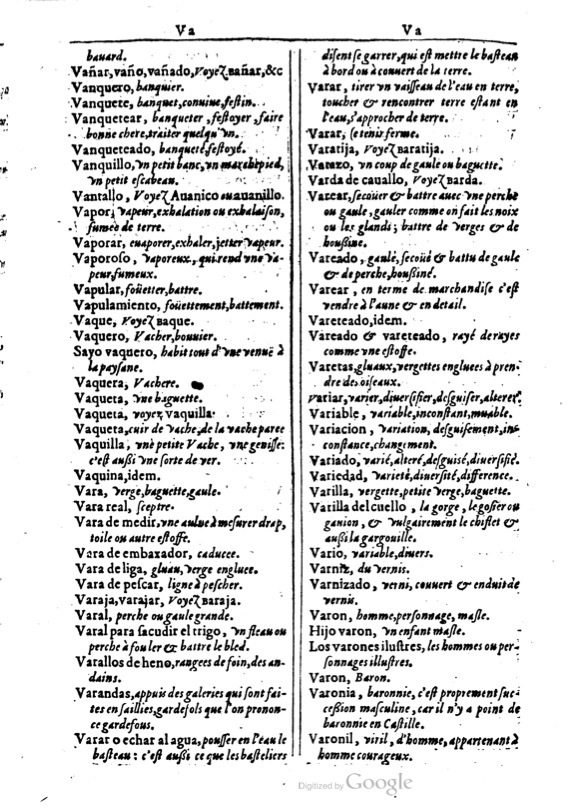 Va
bauard.
Vañar, vaño, vañado, Voyez Bañar, &c
Vanquero, banquier.
Vanquete, banquet, conuiue, festin.
Vanquetear, banqueter, festoyer, faire
bonne chere, traiter quelqu'vn.
Vanqueteado, banqueté, festoyé.
Vanquillo, vn petit banc, vn marchepied,
vn petit escabeau.
Vantallo, Voyez Auanico ou auanillo.
Vapor, vapeur, exhalation ou exhalaison,
fumée de terre.
Vaporar, euaporer, exhaler, jetter vapeur.
Vaporoso, vaporeux, qui rend vne va-
peur, fumeux.
Vapular, foüetter, battre.
Vapulamiento, foüettement, battement.
Vaque, Voyez Baque.
Vaquero, Vacher, bouuier.
Sayo vaquero, habit tout d'vne venuë à
la paysane.
Vaquera, Vachere.
Vaqueta, vne baguette.
Vaqueta, voyez vaquilla.
Vaqueta, cuir de vache, de la vache paree
Vaquilla, vne petite Vache, vne genisse:
c'est außi vne sorte de ver.
Vaquina, idem.
Vara, verge, baguette, gaule.
Vara real, sceptre.
Vara de medir, vne aulne à mesurer drap,
toile ou autre estoffe.
Vara de embaxador, caducee.
Vara de liga, gluau, verge engluee.
Vara de pescar, ligne à pescher.
Varaja, varajar, Voyez Baraja.
Varal, perche ou gaule grande.
Varal para sacudir el trigo, vn fleau ou
perche à fouler & battre le bled.
Varallos de heno, rangees de foin, des an-
dains.
Varandas, appuis des galeries qui sont fai-
tes en saillies, gardefols que l'on pronon-
ce gardefous.
Varar o echar al agua, pousser en l'eau le
basteau: c'est außi ce que les basteliers
Va
disent se garrer, qui est mettre le basteau
à bord ou à couuert de la terre.
Varar, tirer vn vaisseau de l'eau en terre,
toucher & rencontrer terre estant en
l'eau, s'approcher de terre.
Varar, se tenir ferme.
Varatija, Voyez Baratija.
Varazo, vn coup de gaule ou baguette.
Varda de cauallo, Voyez Barda.
Varear, secoüer & battre auec vne perche
ou gaule, gauler comme on fait les noix
ou les glands; battre de verges & de
houßine.
Vareado, gaulé, secoüé & battu de gaule
& de perche, houßiné.
Varear, en terme de marchandise c'est
vendre à l'aune & en detail.
Vareteado, idem.
Vareado & vareteado, rayé de rayes
comme vne estoffe.
Varetas, gluaux, vergettes engluees à pren-
dre des oiseaux.
Variar, varier, diuersifier, desguiser, alterer.
Variable, variable, inconstant, muable.
Variacion, variation, desguisement, in-
constance, changement.
Variado, varié, alteré, desguisé, diuersifié.
Variedad, varieté, diuersité, difference.
Varilla, vergette, petite verge, baguette.
Varilla del cuello, la gorge, le gosier ou
gauion, & vulgairement le chiflet &
außi la gargouille.
Vario, variable, diuers.
Varniz, du vernis.
Varnizado, verni, couuert & enduit de
vernis.
Varon, homme, personnage, masle.
Hijo varon, vn enfant masle.
Los varones ilustres, les hommes ou per-
sonnages illustres.
Varon, Baron.
Varonia, baronnie, c'est proprement suc-
ceßion masculine, car il n'y a point de
baronnie en Castille.
Varonil, viril, d'homme, appartenant à
homme courageux.
Digitized by Google